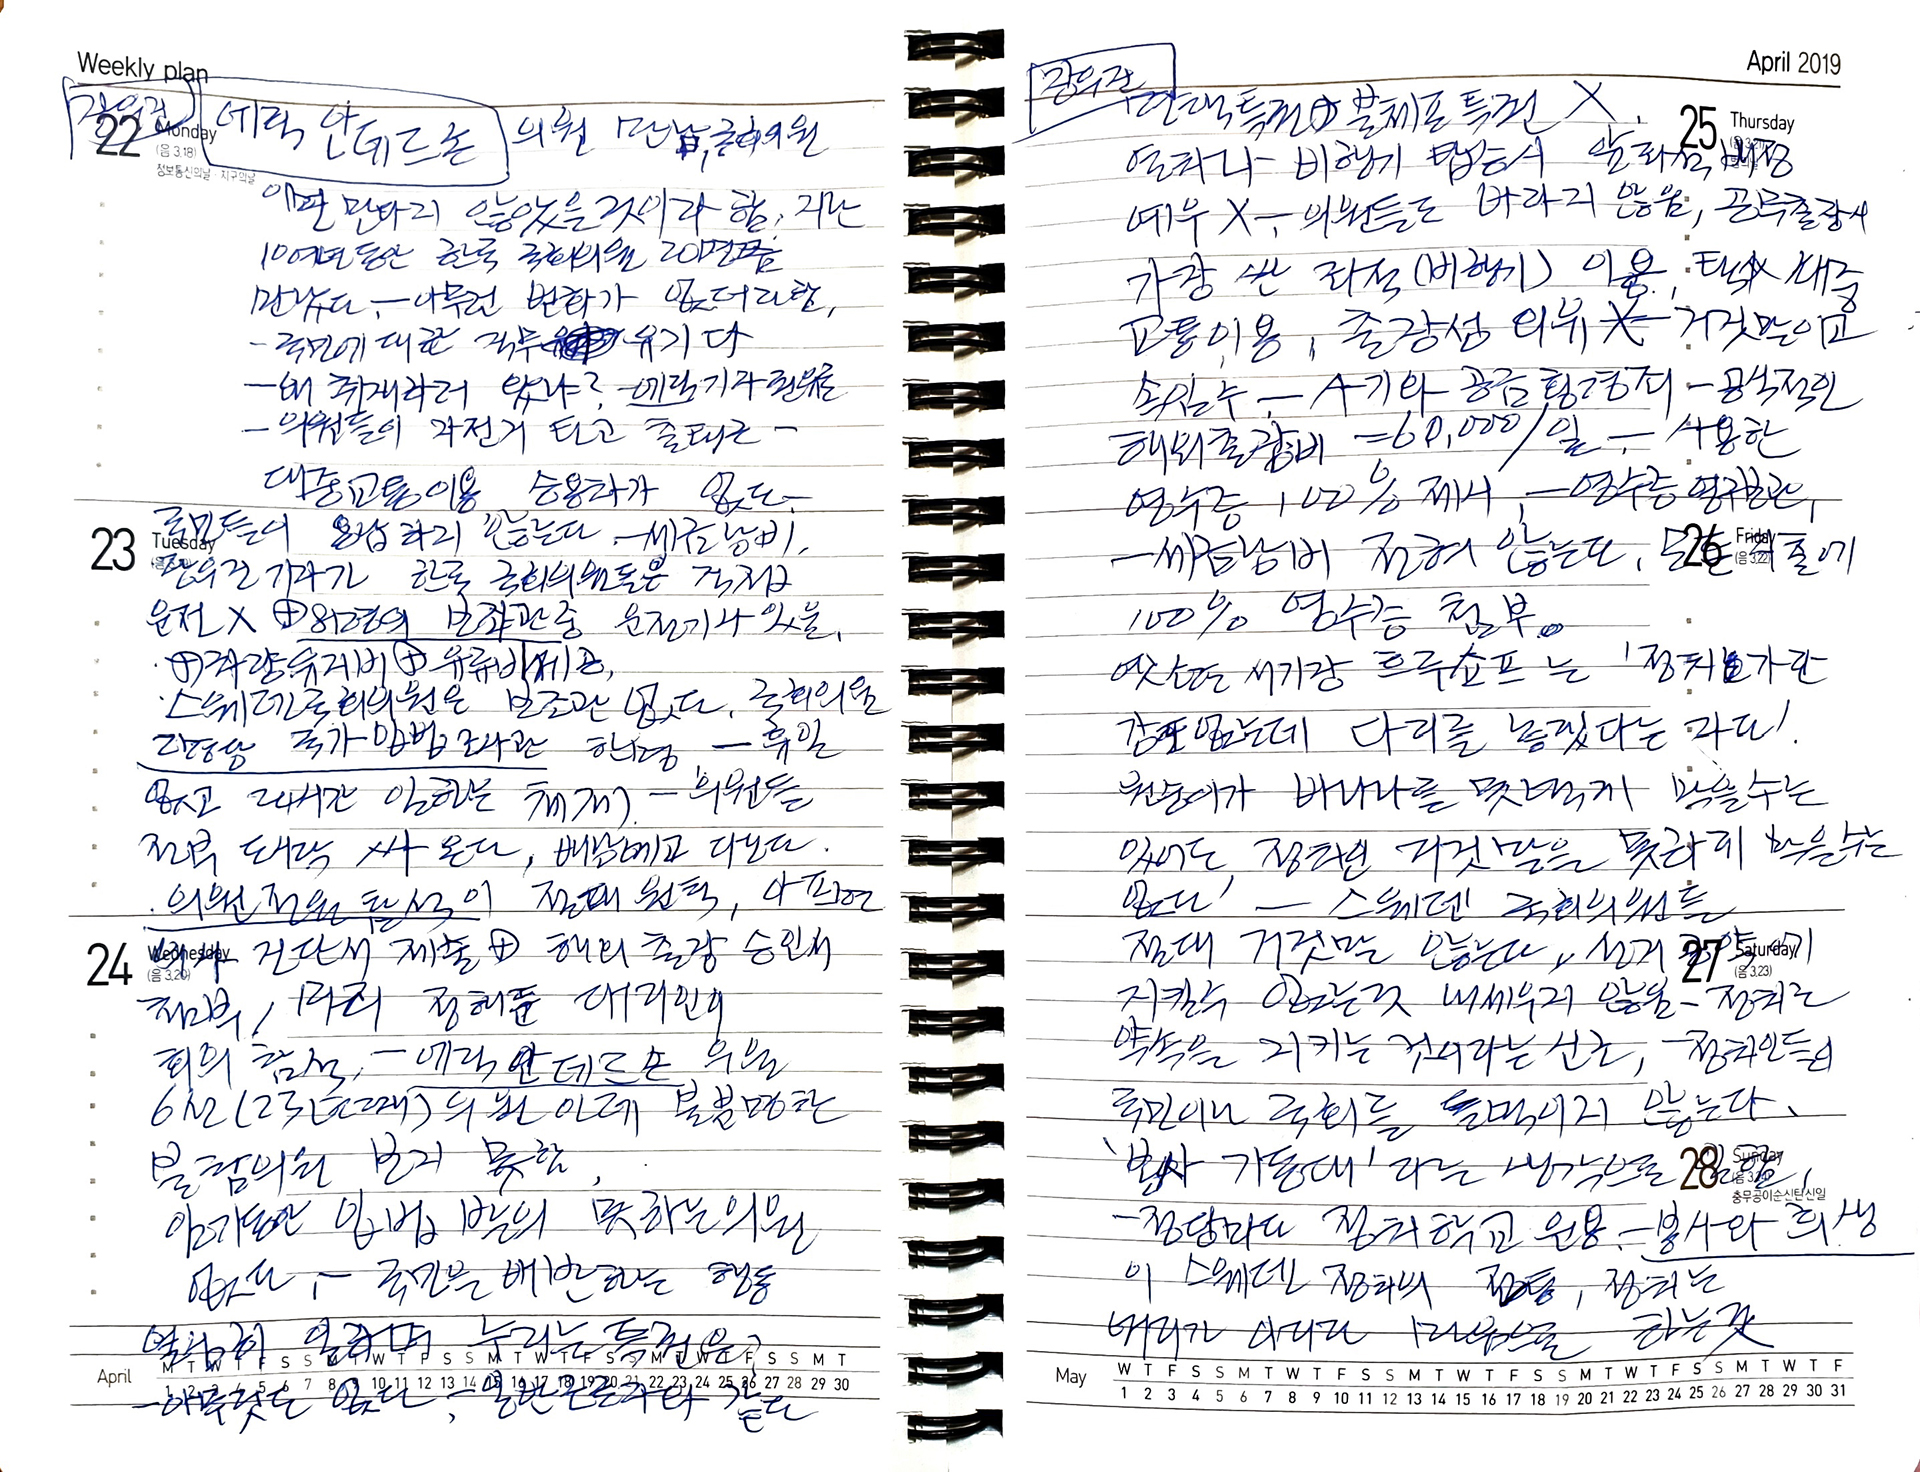 Weekly plan
22 Monday
(음 3.18)
정보통신의날 · 지구의날
에릭 안데르손 의원 만남, 국회의원
만나지 않았을것이라 함, 지난
10여년동안 한국 국회의원 200명쯤
만났다. — 아무런 변화가 없더라함,
- 국민에 대한 직무 유기다
— 왜 취재하러 왔냐? — 에릭 기자
— 의원들이 자전거 타고 출퇴근 —
대중교통이용 승용차가 없다.
23 Tuesday
국민들이 용납하지 않는다 — 세금낭비,
기자가 한국 국회의원들은 직접
운전 X ⊕ 8명의 보좌관중 운전기사 있음,
· ⊕차량유지비 ⊕ 유류비제공,
· 스웨덴국회의원은 보조관 없다. 국회의원
국가입법조사관 — 휴일
없고 24시간 일하는 체제) — 의원들
전부 도시락 싸 온다, 배낭메고 다닌다.
· 의원전원 출석이 절대 원칙, 아프면
24 Wednesday
(음 3.20)
진단서 제출 ⊕ 해외 출장 승인서
회의 참석, — 에릭 안데르손 의원
6선(23년째) 의원인데 불분명한
불참의원 보지 못함,
임기동안 입법 발의 못하는의원
없다, — 국민을 배반하는 행동
열심히 일하며 누리는 특권은?
— 아무것도 없다, — 일반근로자와 같다
April
M T W T F S S M T W T F S S M T W T F S S M T W T F S S M T
1 2 3 4 5 6 7 8 9 10 11 12 13 14 15 16 17 18 19 20 21 22 23 24 25 26 27 28 29 30
April 2019
25 Thursday
면책특권⊕불체포특권 X,
열차나 비행기 탑승시 앞좌석 배정
예우 X — 의원들도 바라지 않음, 공무출장시
가장 싼 좌석(비행기) 이용, 택X/대중
교통이용, 출장성 외유 X — 거짓말이고
속임수 — 사기와 공금횡령죄 — 공식적인
해외출장비 = 60,000/일 — 사용한
영수증 100% 제시, — 영수증 영구보관,
26 Friday
(음 3.22)
— 세금낭비 전혀 않는다, 모든 지출에
100% 영수증 첨부。
옛소련 서기장 흐루쇼프는 '정치가란
강도 없는데 다리를 놓겠다는 자다'
원숭이가 바나나를 못먹게 막을수는
있어도, 정치인 거짓말은 못하게 막을수는
없다' — 스웨덴 국회의원들
27 Saturday
(음 3.23)
절대 거짓말 않는다, 선거 공약
지킬수 없는것 내세우지 않음 — 정치는
약속을 지키는 것이라는 신조, — 정치인들이
국민이나 국회를 돌먹이지 않는다,
28 Sunday
충무공이순신탄신일
'봉사 기동대' 라는 생각으로 일함,
— 정당마다 정치학교 운용 — 봉사와 희생
이 스웨덴 정치의 전통, 정치는
머리가 아니라 마음으로 하는것
May
W T F S S M T W T F S S M T W T F S S M T W T F S S M T W T F
1 2 3 4 5 6 7 8 9 10 11 12 13 14 15 16 17 18 19 20 21 22 23 24 25 26 27 28 29 30 31